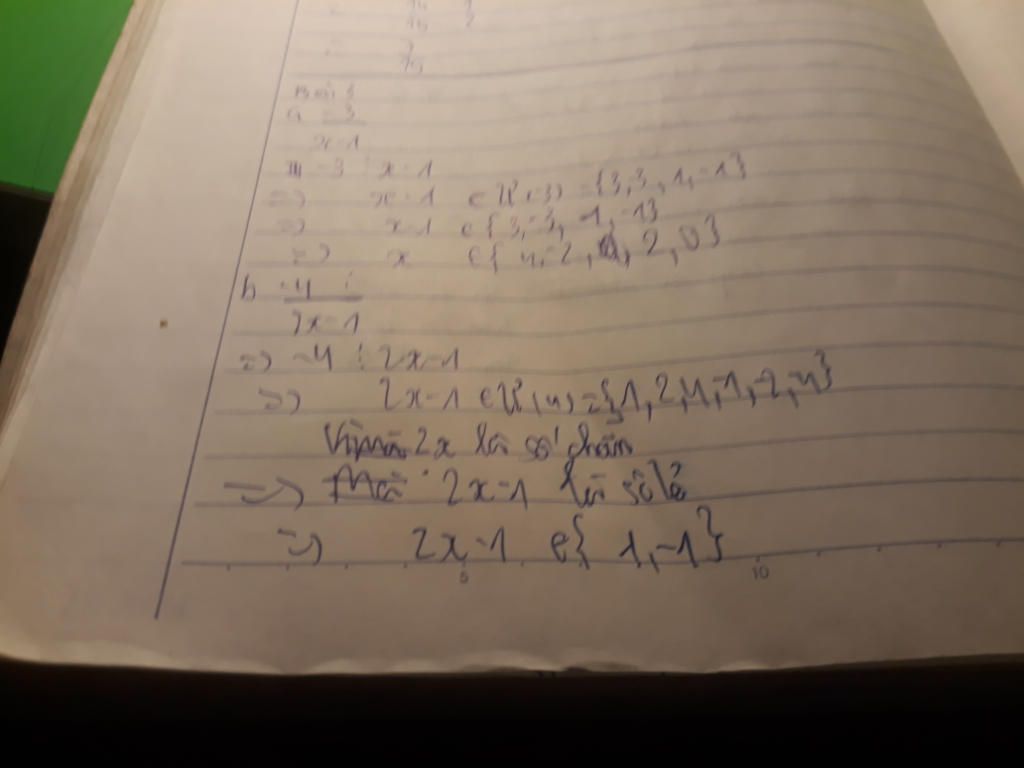 15 2
15
Bài 3
a -3
x-1
-3 ⋮ x-1
=> x-1 ∈ Ư(-3) = {3,-3,1,-1}
=> x-1 ∈ {3,-3,1,-1}
=> x ∈ { 4,-2, 2, 0}
b -4 :
2x-1
=> -4 ⋮ 2x-1
=> 2x-1 ∈ Ư(4) = {1,2,4,-1,-2,-4}
Vì 2x là số chẵn
=> 2x-1 là số lẻ
=> 2x-1 ∈ { 1,-1}
5 10